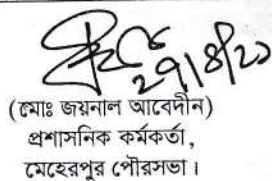 ২৭/৪/২১
(মোঃ জয়নাল আবেদীন)
প্রশাসনিক কর্মকর্তা,
মেহেরপুর পৌরসভা।